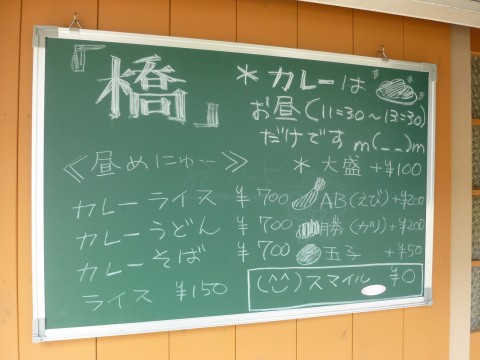 『橋』
＊カレーは
お昼(11:30～13:30)
だけです m(__)m
≪昼めにゅー≫
カレーライス ¥700
カレーうどん ¥700
カレーそば ¥700
ライス ¥150
＊大盛 +¥100
AB(えび) +¥200
勝(カツ) +¥200
玉子 +¥50
(^^)スマイル ¥0